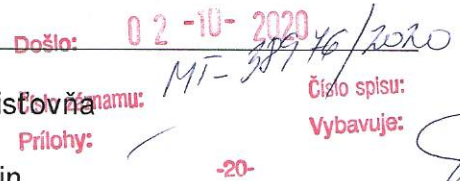 Došlo: 02-10-2020
MT-38976/2020
Číslo záznamu: Číslo spisu:
Prílohy: Vybavuje:
-20-